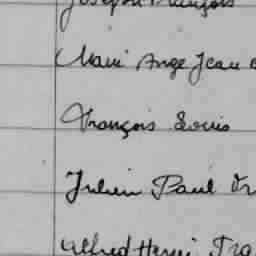 Joseph François
Marie Ange Jean
François Louis
Julien Paul
Alfred Henri